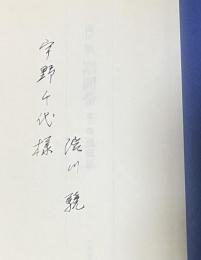 宇野千代様
渋川驍